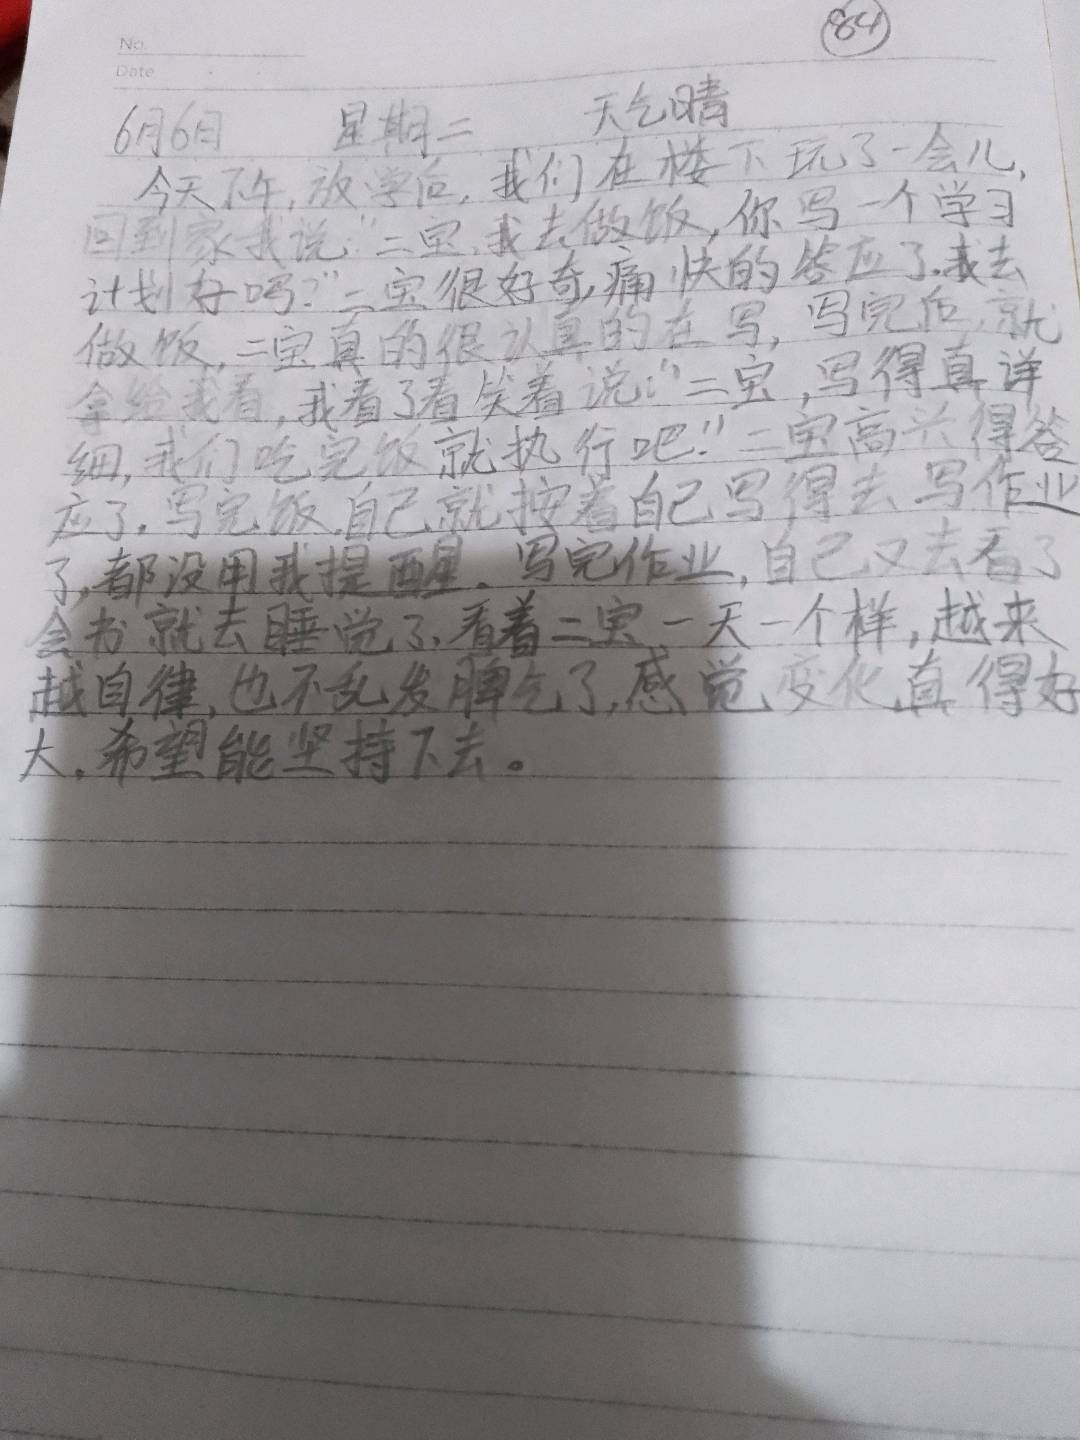 84
No.
Date
6月6日 星期二 天气晴
今天下午,放学后,我们在楼下玩了一会儿,
回到家我说:"二宝,我去做饭,你写一个学习
计划好吗?"二宝很好奇,痛快的答应了.我去
做饭,二宝真的很认真的在写,写完后,就
拿给我看,我看了看笑着说:"二宝,写得真详
细,我们吃完饭就执行吧!"二宝高兴得答
应了.写完饭,自己就按着自己写得去写作业
了,都没用我提醒.写完作业,自己又去看了
会书就去睡觉了.看着二宝一天一个样,越来
越自律,也不乱发脾气了,感觉变化真得好
大,希望能坚持下去。